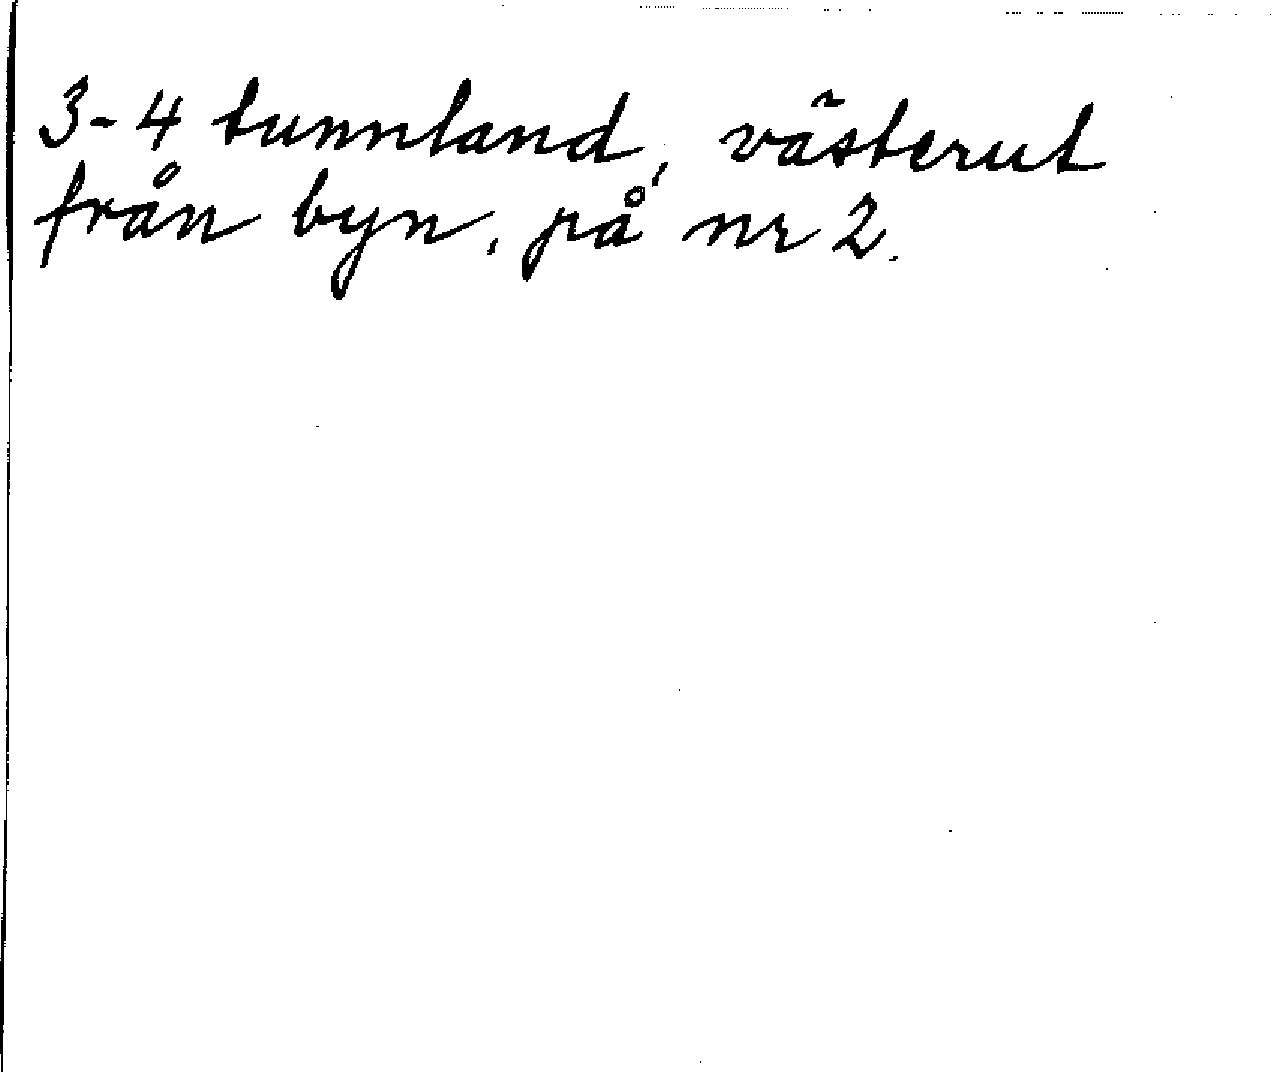 3-4 tunnland, västerut
från byn, på nr 2.